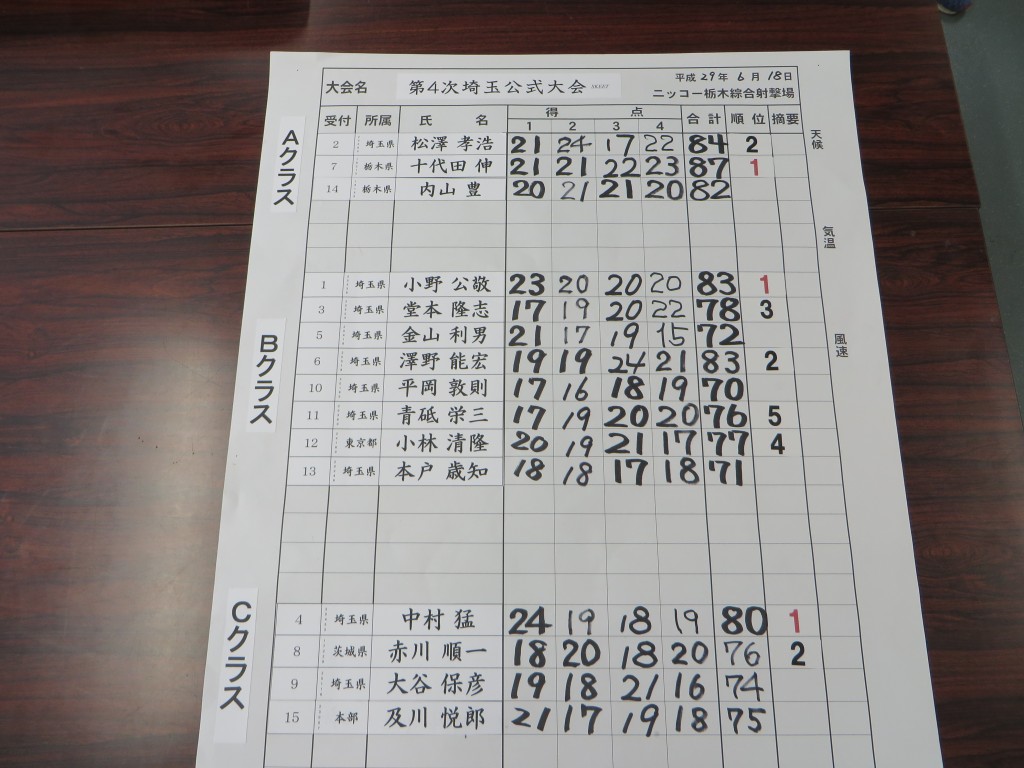 大会名 第4次埼玉公式大会 SKEET 平成29年6月18日
ニッコー栃木綜合射撃場
受付 所属 氏名 得点 合計 順位 摘要
1 2 3 4
天候
気温
風速
Aクラス
2 埼玉県 松澤 孝浩 21 24 17 22 84 2
7 栃木県 十代田 伸 21 21 22 23 87 1
14 栃木県 内山 豊 20 21 21 20 82
Bクラス
1 埼玉県 小野 公敬 23 20 20 20 83 1
3 埼玉県 堂本 隆志 17 19 20 22 78 3
5 埼玉県 金山 利男 21 17 19 15 72
6 埼玉県 澤野 能宏 19 19 24 21 83 2
10 埼玉県 平岡 敦則 17 16 18 19 70
11 埼玉県 青砥 栄三 17 19 20 20 76 5
12 東京都 小林 清隆 20 19 21 17 77 4
13 埼玉県 本戸 歳知 18 18 17 18 71
Cクラス
4 埼玉県 中村 猛 24 19 18 19 80 1
8 茨城県 赤川 順一 18 20 18 20 76 2
9 埼玉県 大谷 保彦 19 18 21 16 74
15 本部 及川 悦郎 21 17 19 18 75